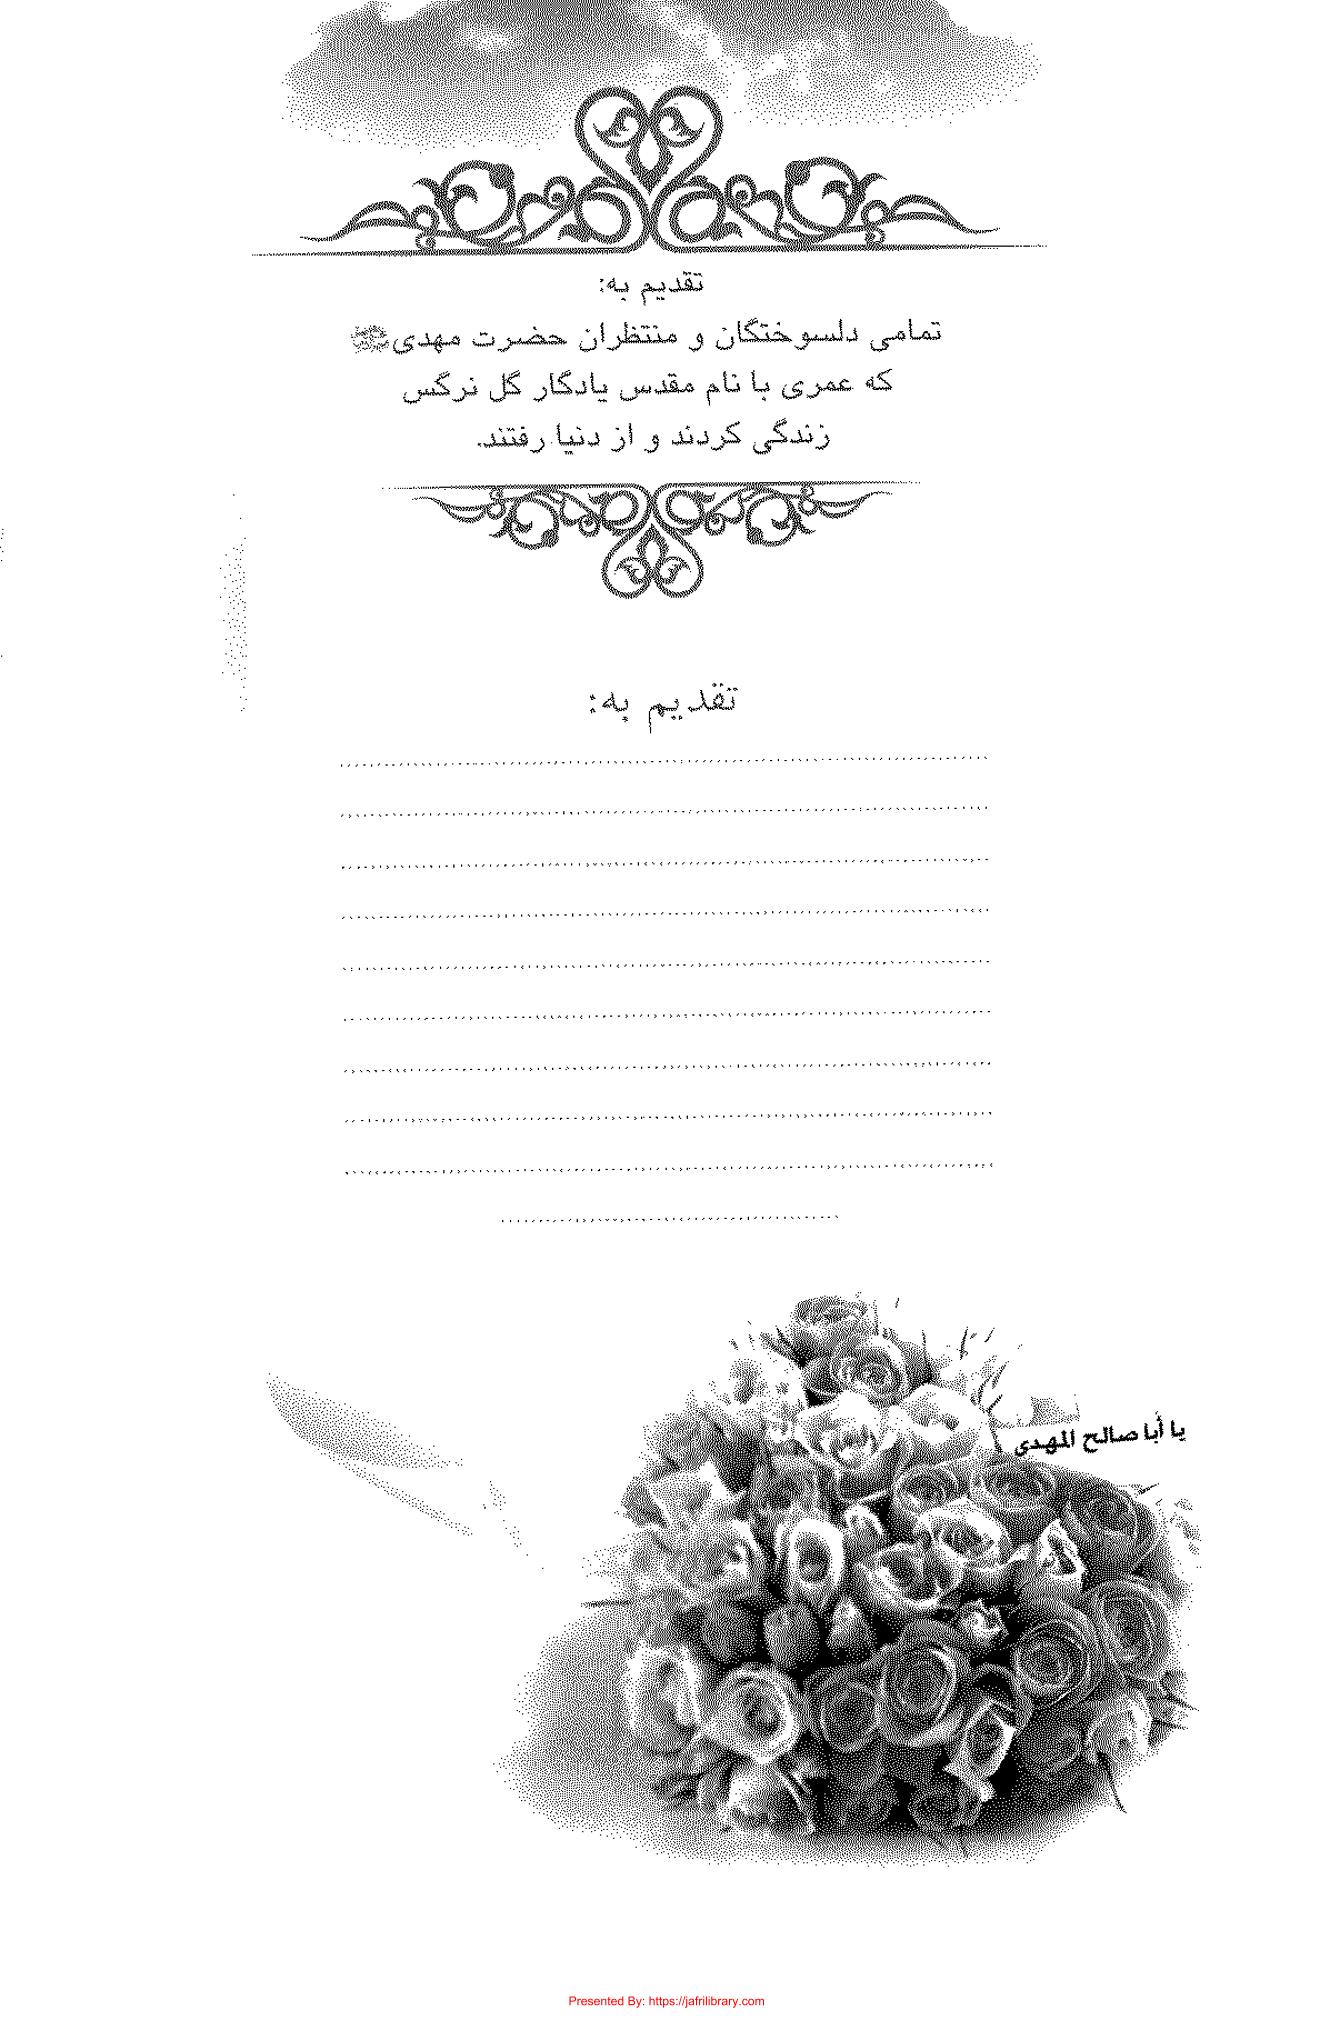 تقدیم به:
تمامی دلسوختگان و منتظران حضرت مهدی
که عمری با نام مقدس یادگار گل نرگس
زندگی کردند و از دنیا رفتند.
تقدیم به:
یا أبا صالح المهدی
Presented By: https://jafrilibrary.com